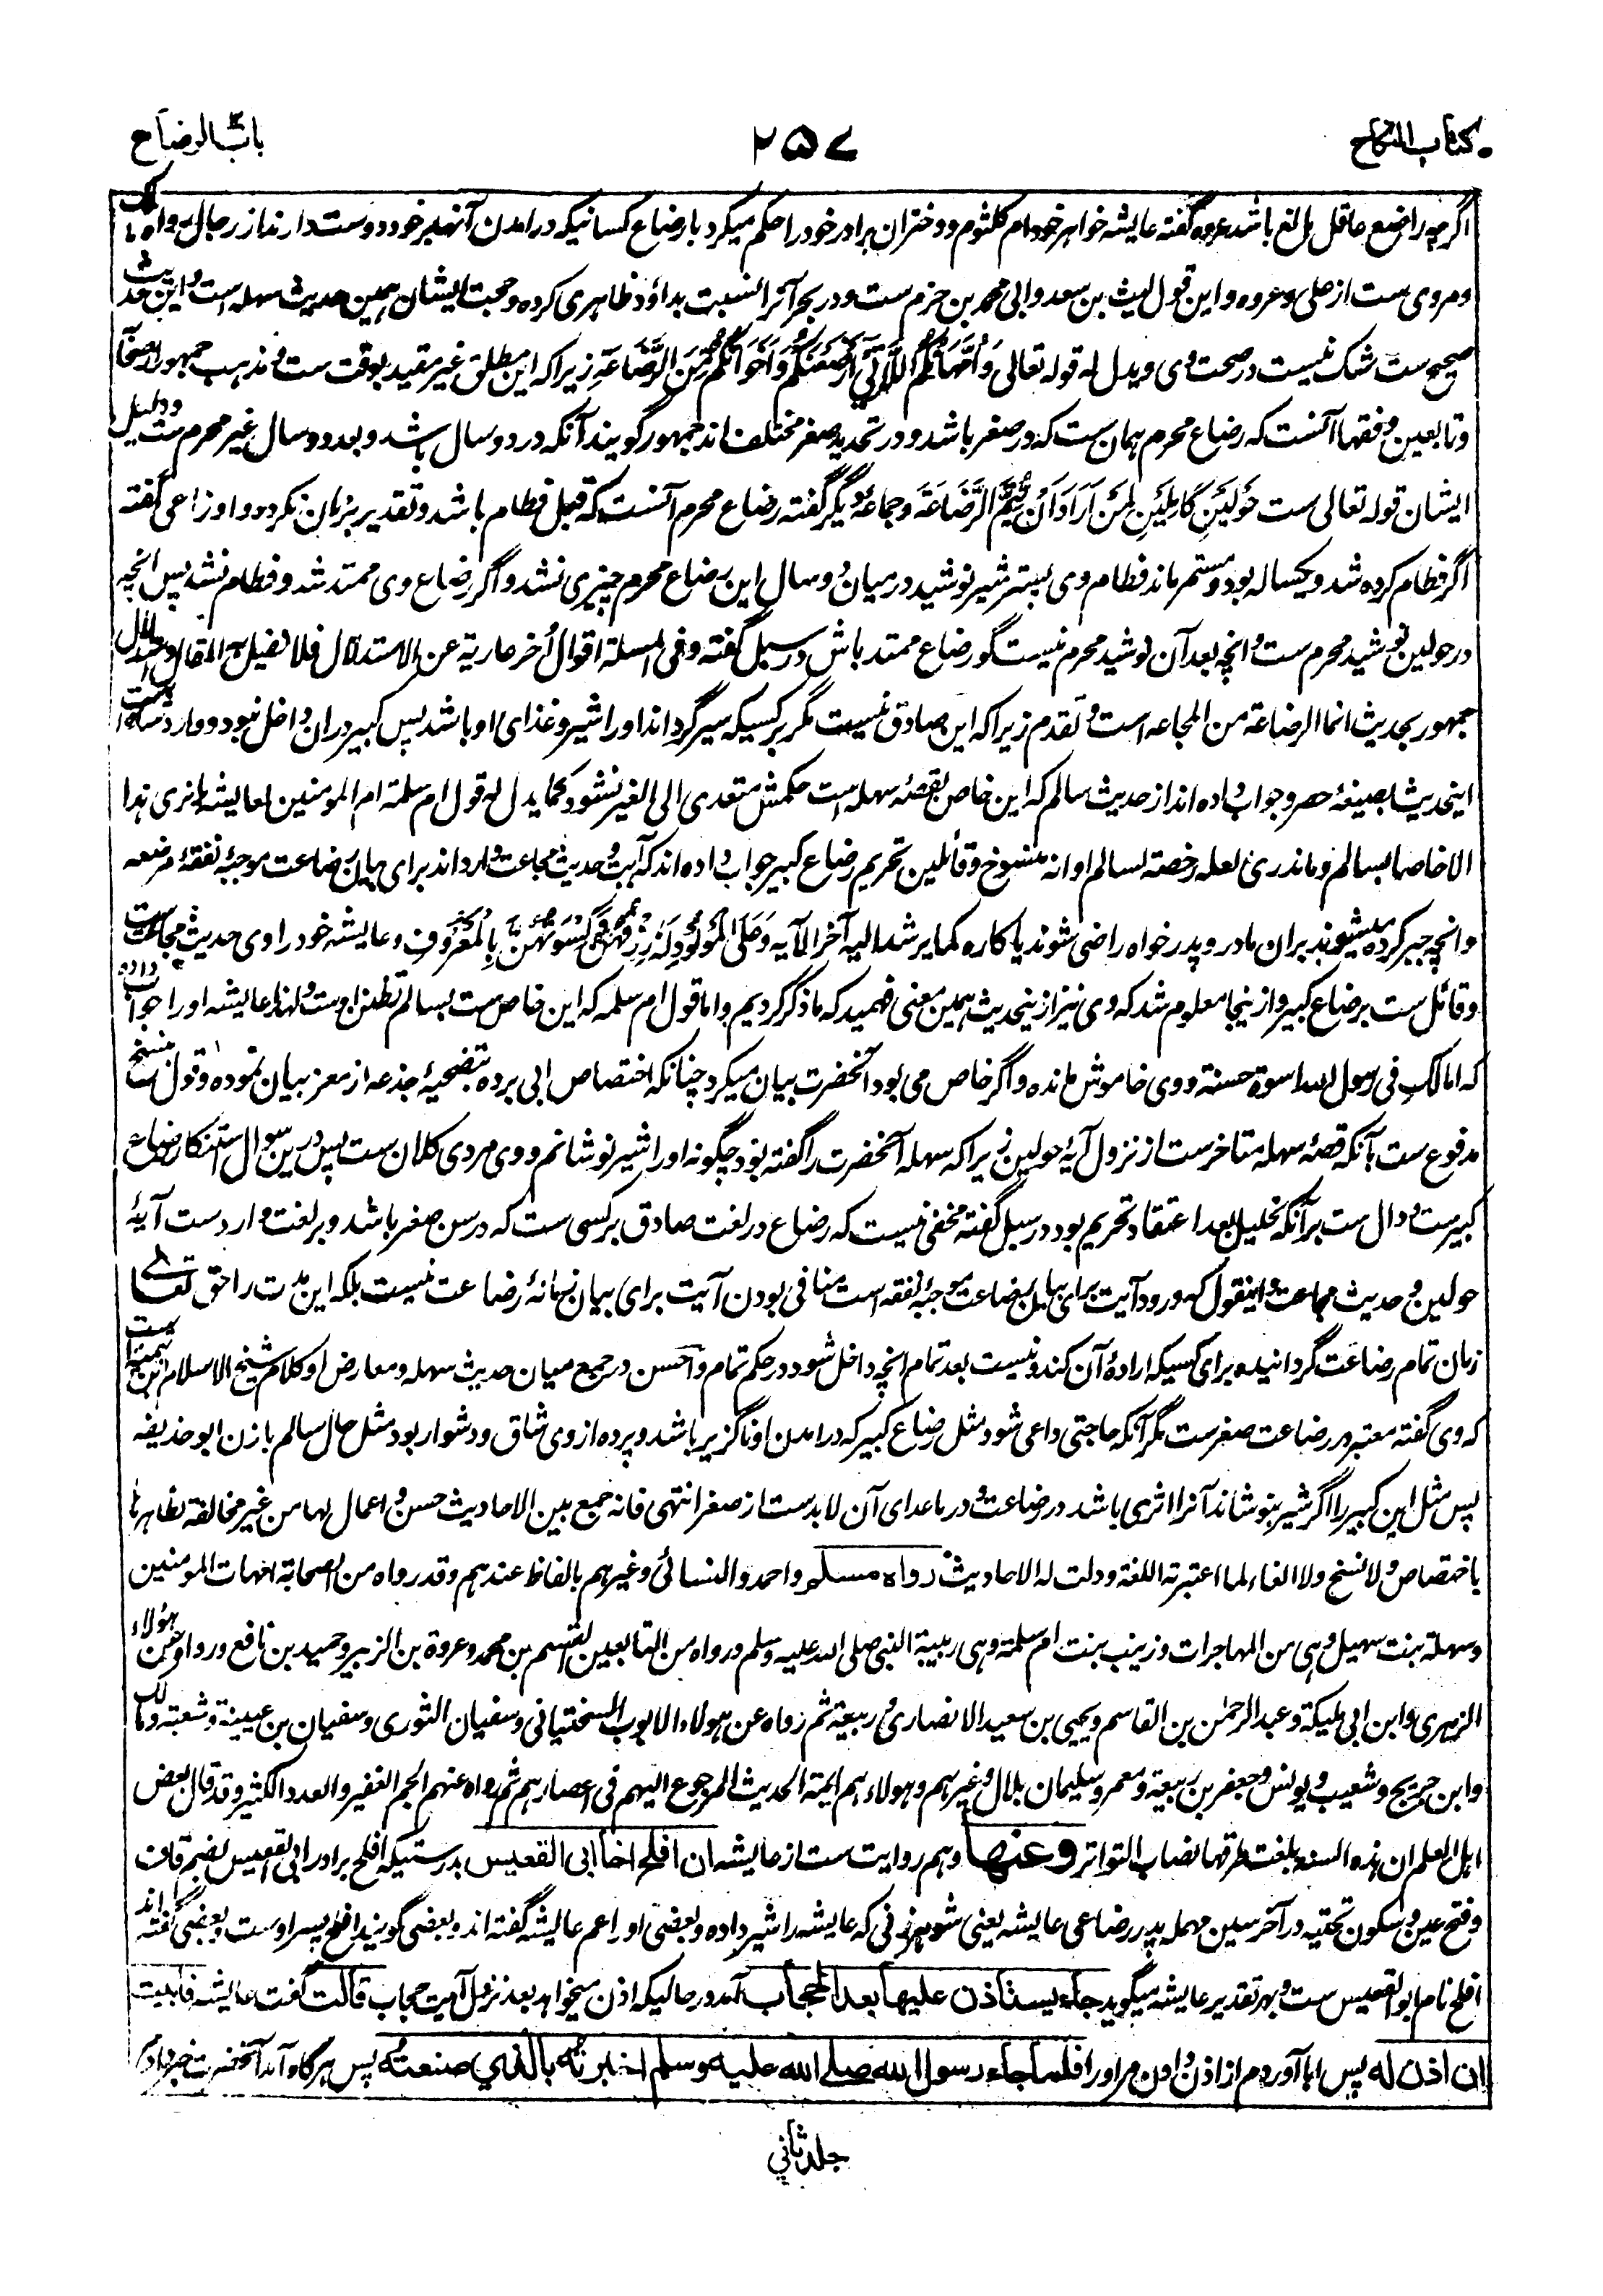 کتاب النکاح
۲۵۷
باب الرضاع
اگرچہ راضع عاقل بالغ باشد عروہ گفتہ عایشہ خواہر خود ام کلثوم و دختران برادر خود را حکم میکرد بارضاع کسانیکہ درامدن آنہا بر خود دوست دارند از رجال رواہ مالک
ومروی ست از علی وعروہ واین قول لیث بن سعد وابی محمد بن حزم ست ودر بحر آنرا نسبت بداؤد ظاہری کردہ وحجت ایشان ہمین حدیث سہلہ است واین حدیث
صحیح ست شک نیست در صحت وی ویدل لہ قولہ تعالی وَاُمَّهَاتُكُمُ اللَّاتِي أَرْضَعْنَكُمْ وَأَخَوَاتُكُمْ مِّنَ الرَّضَاعَةِ زیراکہ این مطلق غیر مقید بوقت ست ومذہب جمہور از صحابہ
وتابعین وفقہا آنست کہ رضاع محرم ہمان ست کہ در صغر باشد ودر تحدید صغر مختلف اند جمہور گویند آنکہ در دو سال باشد وبعد دو سال غیر محرم ست ودلیل
ایشان قولہ تعالی ست حَوْلَيْنِ كَامِلَيْنِ لِمَنْ أَرَادَ أَنْ يُتِمَّ الرَّضَاعَةَ وجماعۂ دیگر گفتہ رضاع محرم آنست کہ قبل فطام باشد وتقدیر بزمان نکردہ واوزاعی گفتہ
اگر فطام کردہ شد ویکسالہ بود ومستمر ماند فطام وی پستر شیر نوشید در میان دو سال این رضاع محرم چیزی نشد واگر رضاع وی ممتد شد وفطام نشد پس انچہ
در حولین نوشید محرم ست وانچہ بعد آن نوشید محرم نیست گو رضاع ممتد باش در سبل گفتہ وفی المسئلة اقوال أُخر عاریة عن الاستدلال فلا نطیل بہا المقال واستدلال
جمہور بحدیث انما الرضاعة من المجاعہ است وتقدم زیراکہ این صادق نیست مگر بر کسیکہ سیر گرداند اورا شیر وغذای او باشد پس کبیر دران داخل نبود ووارد شدہ است
اینحدیث بصیغۂ حصر وجواب دادہ اند از حدیث سالم کہ این خاص بقصۂ سہلہ است حکمش متعدی الی الغیر نشود کما یدل لہ قول ام سلمة ام المومنین لعایشة ما نری ہذا
الا خاصا بسالم وما ندری لعلہ رخصة لسالم او انہ منسوخ وقائلین تحریم رضاع کبیر جواب دادہ اند کہ آیت وحدیث مجاعت وارد اند برای بیان رضاعت موجبۂ نفقۂ مرضعہ
وانچہ جبر کردہ میشوند بران مادر وپدر خواہ راضی شوند یا کارہ کما یرشد الیہ آخر الآیہ وَعَلَى الْمَوْلُودِ لَهُ رِزْقُهُنَّ وَكِسْوَتُهُنَّ بِالْمَعْرُوفِ وعایشہ خود راوی حدیث مجاعت ست
وقائل ست برضاع کبیر وازینجا معلوم شد کہ وی نیز ازینحدیث ہمین معنی فہمید کہ ما ذکر کردیم واما قول ام سلمہ کہ این خاص ست بسالم تظنن اوست ولہذا عایشہ اورا جواب دادہ
کہ اما لکِ فی رسول اللہ اسوة حسنة ووی خاموش ماندہ واگر خاص می بود آنحضرت بیان میکرد چنانکہ اختصاص ابی بردہ بتضحیۂ جذعہ از معز بیان نمودہ وقول نسخ
مدفوع ست بآنکہ قصۂ سہلہ متاخر ست از نزول آیۂ حولین زیراکہ سہلہ آنحضرت را گفتہ بود چگونہ اورا شیر نوشانم ووی مردی کلان ست پس درین سوال استنکار رضاع
کبیر ست ودال ست برآنکہ تحلیل بعد اعتقاد تحریم بود در سبل گفتہ مخفی نیست کہ رضاع در لغت صادق بر کسی ست کہ در سن صغر باشد وبر لغت وارد ست آیۂ
حولین وحدیث مجاعت واینقول کہ ورود آیت برای بیان رضاعت موجبۂ نفقہ است منافی بودن آیت برای بیان زمانۂ رضاعت نیست بلکہ این مدت را حق تعالے
زمان تمام رضاعت گردانیدہ برای کسیکہ ارادۂ آن کند ونیست بعد تمام انچہ داخل شود در حکم تمام واحسن در جمع میان حدیث سہلہ ومعارض او کلام شیخ الاسلام ابن تیمیہ است
کہ وی گفتہ معتبر در رضاعت صغر ست مگر آنکہ حاجتی داعی شود مثل رضاع کبیر کہ درامدن او ناگزیر باشد وپردہ از وی شاق ودشوار بود مثل حال سالم با زن ابو حذیفہ
پس مثل این کبیر را اگر شیر بنوشاند آنرا اثری باشد در رضاعت ودر ماعدای آن لابدست از صغر انتہی فانہ جمع بین الاحادیث حسن واعمال لہا من غیر مخالفة لظاہرہا
باختصاص ولا نسخ ولا الغاء لما اعتبرتہ اللغة ودلت لہ الاحادیث رواہ مسلم واحمد والنسائی وغیرہم بالفاظ عندہم وقد رواہ من الصحابة امہات المومنین
وسہلة بنت سہیل وہی من المہاجرات وزینب بنت ام سلمة وہی ربیبة النبی صلی اللہ علیہ وسلم ورواہ من التابعین القسم بن محمد وعروة بن الزبیر وحمید بن نافع ورواہ عن ہؤلاء
الزہری وابن ابی ملیکة وعبد الرحمٰن بن القاسم ویحیی بن سعید الانصاری وربیعة ثم رواہ عن ہولاء الایوب السختیانی وسفیان الثوری وسفیان بن عیینة وشعبة ومالک
وابن جریج وشعیب ویونس وجعفر بن ربیعة ومعمر وسلیمان بلال وغیرہم وہولاء ہم ایمة الحدیث المرجوع الیہم فی اعصارہم ثم رواہ عنہم الجم الغفیر والعدد الکثیر وقد قال بعض
اہل العلم ان ہذہ السنة بلغت طرقہا نصاب التواتر وعنها وہم روایت ست از عایشہ ان افلح اخا ابی القعیس بدرستیکہ افلح برادر ابی القعیس بضم قاف
وفتح عین وسکون تحتیہ در آخر سین مہملہ پدر رضاعی عایشہ یعنی شوہر زنی کہ عایشہ را شیر دادہ وبعضی اورا عم عایشہ گفتہ اند وبعضی گویند افلح پسر اوست وبعضی گفتہ اند
افلح نام ابو القعیس ست وبہر تقدیر عایشہ میگوید جاء یستاذن علیها بعد الحجاب آمد در حالیکہ اذن میخواہد بعد نزول آیت حجاب قالت گفت عایشہ فابیت
ان اذن له پس ابا آوردم از اذن دادن مر اورا فلما جاء رسول الله صلے الله علیه وسلم اخبرته بالذي صنعته پس ہرگاہ آمد آنحضرت خبر دادم
جلد ثانی